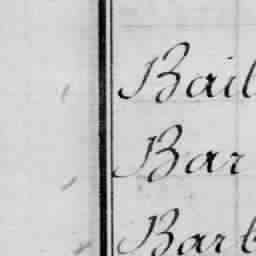 Bail
Bar
Barb